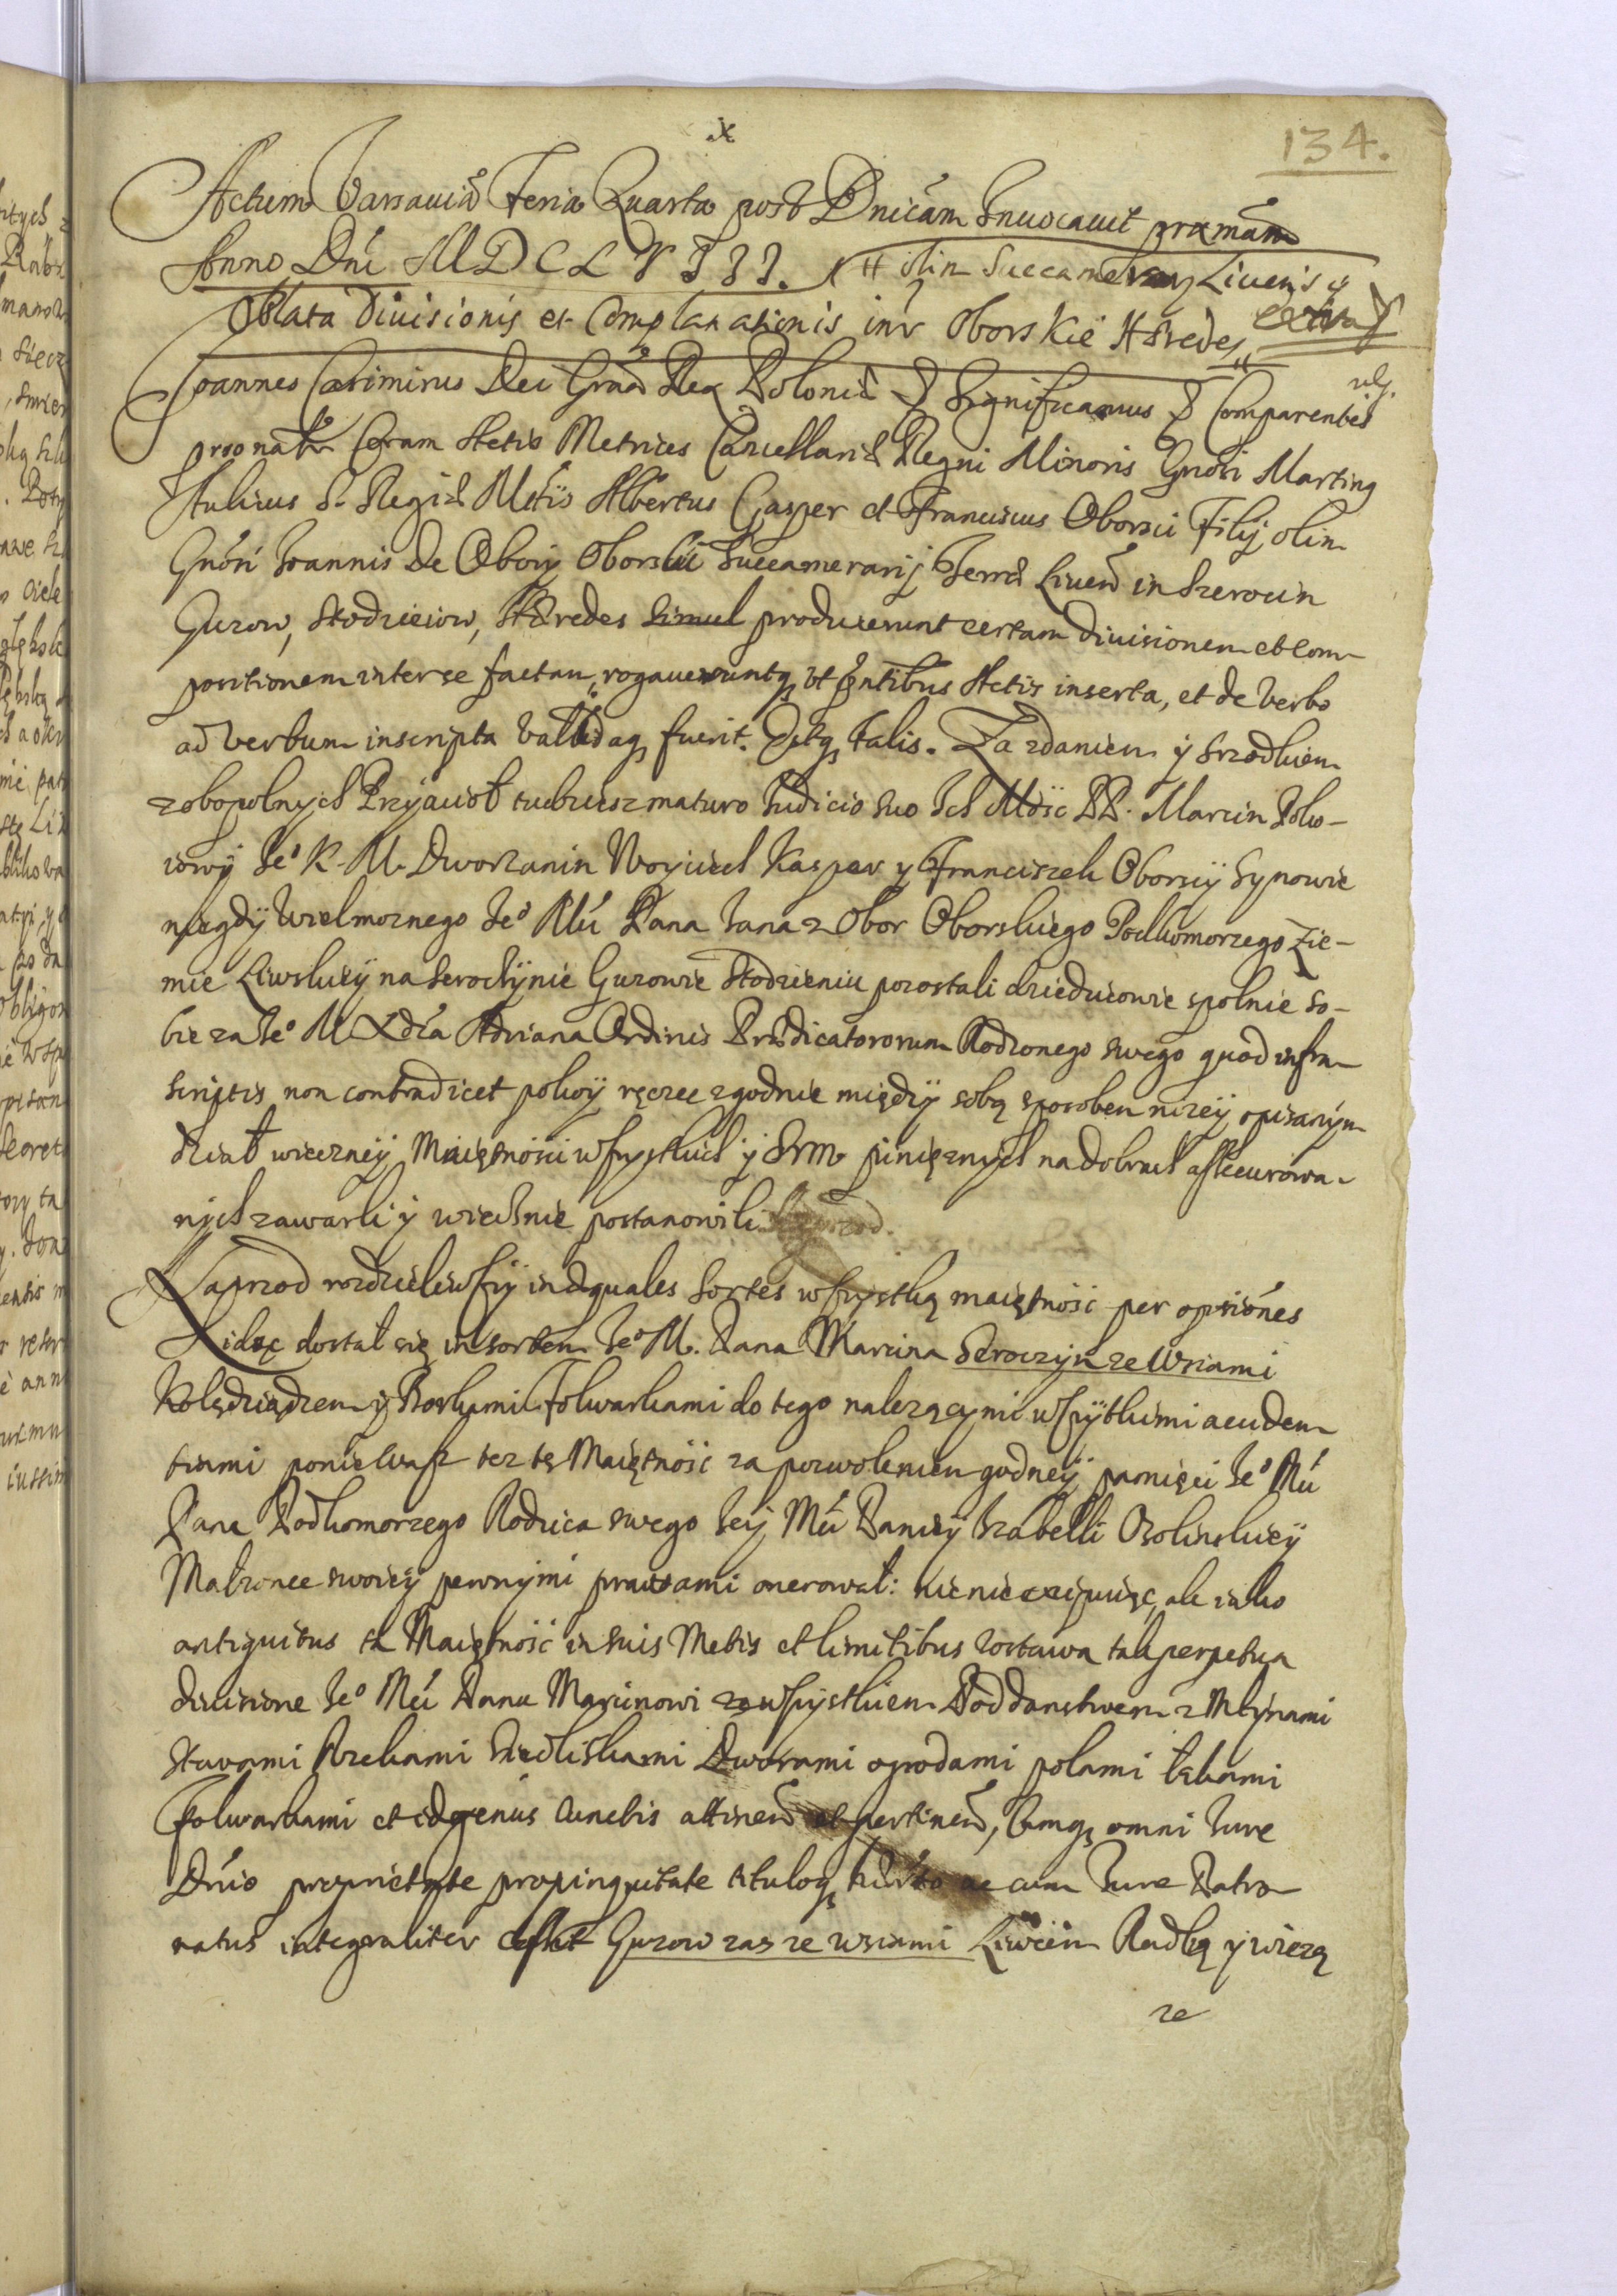 134.
Actum Varsaviæ Feria Quarta post Dnicam Invocavit proximam
Anno Dni MDCLVIII. # olim Succamerarij Livensis
Oblata Divisionis et Complanationis inter Oborskie Hæredes
Joannes Casimirus Dei Gra Rex Poloniæ & Significamus & Comparentes
prsonalr Coram Actis Metrices Cancellariæ Regni Minoris Gnosi Martinq
Aulicus S. Regiæ Mttis Albertus Gasper et Franciscus Oborscii Filij olim
Gnosi Joannis De Obory Oborskii Succamerarij Terræ Liven in Szerocin
Guzow, Stodzieiow, Hæredes simul produxerunt certam divisionem et com-
positionem inter se factam, rogaveruntq vt pntibus Actis inserta, et de verbo
ad verbum inscripta validaq fuerit. Estq talis. Za zdaniem y srzodkiem
zobopolnych Przyaciol tudziesz maturo Judicio suo Ich Mosc PP. Marcin Poko-
iowÿ Jeo K. M. Dworzanin Woyciech Kasper y Franciszek Oborscÿ Synowie
niegdÿ Wielmoznego Jeo Mci Pana Jana z Obor Oborskiego Podkomorzego Zie-
mie Liwskieÿ na Serocÿnie Guzowie Stodzieniu pozostali dziedzicowie spolnie so-
bie za Jeo M Xdza Adriana Ordinis Prædicatororum Rodzonego swego quod infra
scriptis non contradicet pokoÿ ręcząc zgodnie międzÿ sobą sposobem nizeÿ opisanÿm
dział wiecznÿ Maiętnosci wszystkich y Summ pienięznych na dobrach assecurowa-
nych zawarli y wiecznie postanowili
Naprzod rozdzieliwszÿ in æquales sortes wszystką maiętnosc per optiones
Idąc dostał się in sortem Jeo M. Pana Marcina Seroczyn ze Wsiami
Kolędziądzem y Borkami Folwarkami do tego nalezącymi wszÿtkimi acciden-
tiami poniewasz tez tę Maiętnosc za pozwoleniem godneÿ pamięci Jeo Mci
Pana Podkomorzego Rodzica swego Jeÿ Mci Panieÿ Izabelli Osolinskieÿ
Małzonce swoieÿ pewnymi prawami onerował: nic nie excipuiąc, ale iako
antiquitus ta Maiętnosc in suis Metis et limitibus zostawa tak perpetua
divisione Jeo Mci Panu Marcinowi ze wszystkiem Poddanstwem z Młynami
Stawami Rzekami Siedliskami Dworami ogrodami polami łękami
Folwarkami et id genus cunctis attinen et pertinen, Cumq omni Jure
Dnio proprietate propinquitate tituloq hæredo ac cum Jure Patro-
natus integraliter cessit Guzow zas ze wsiami Liwcem Rudką y wiezą
ze